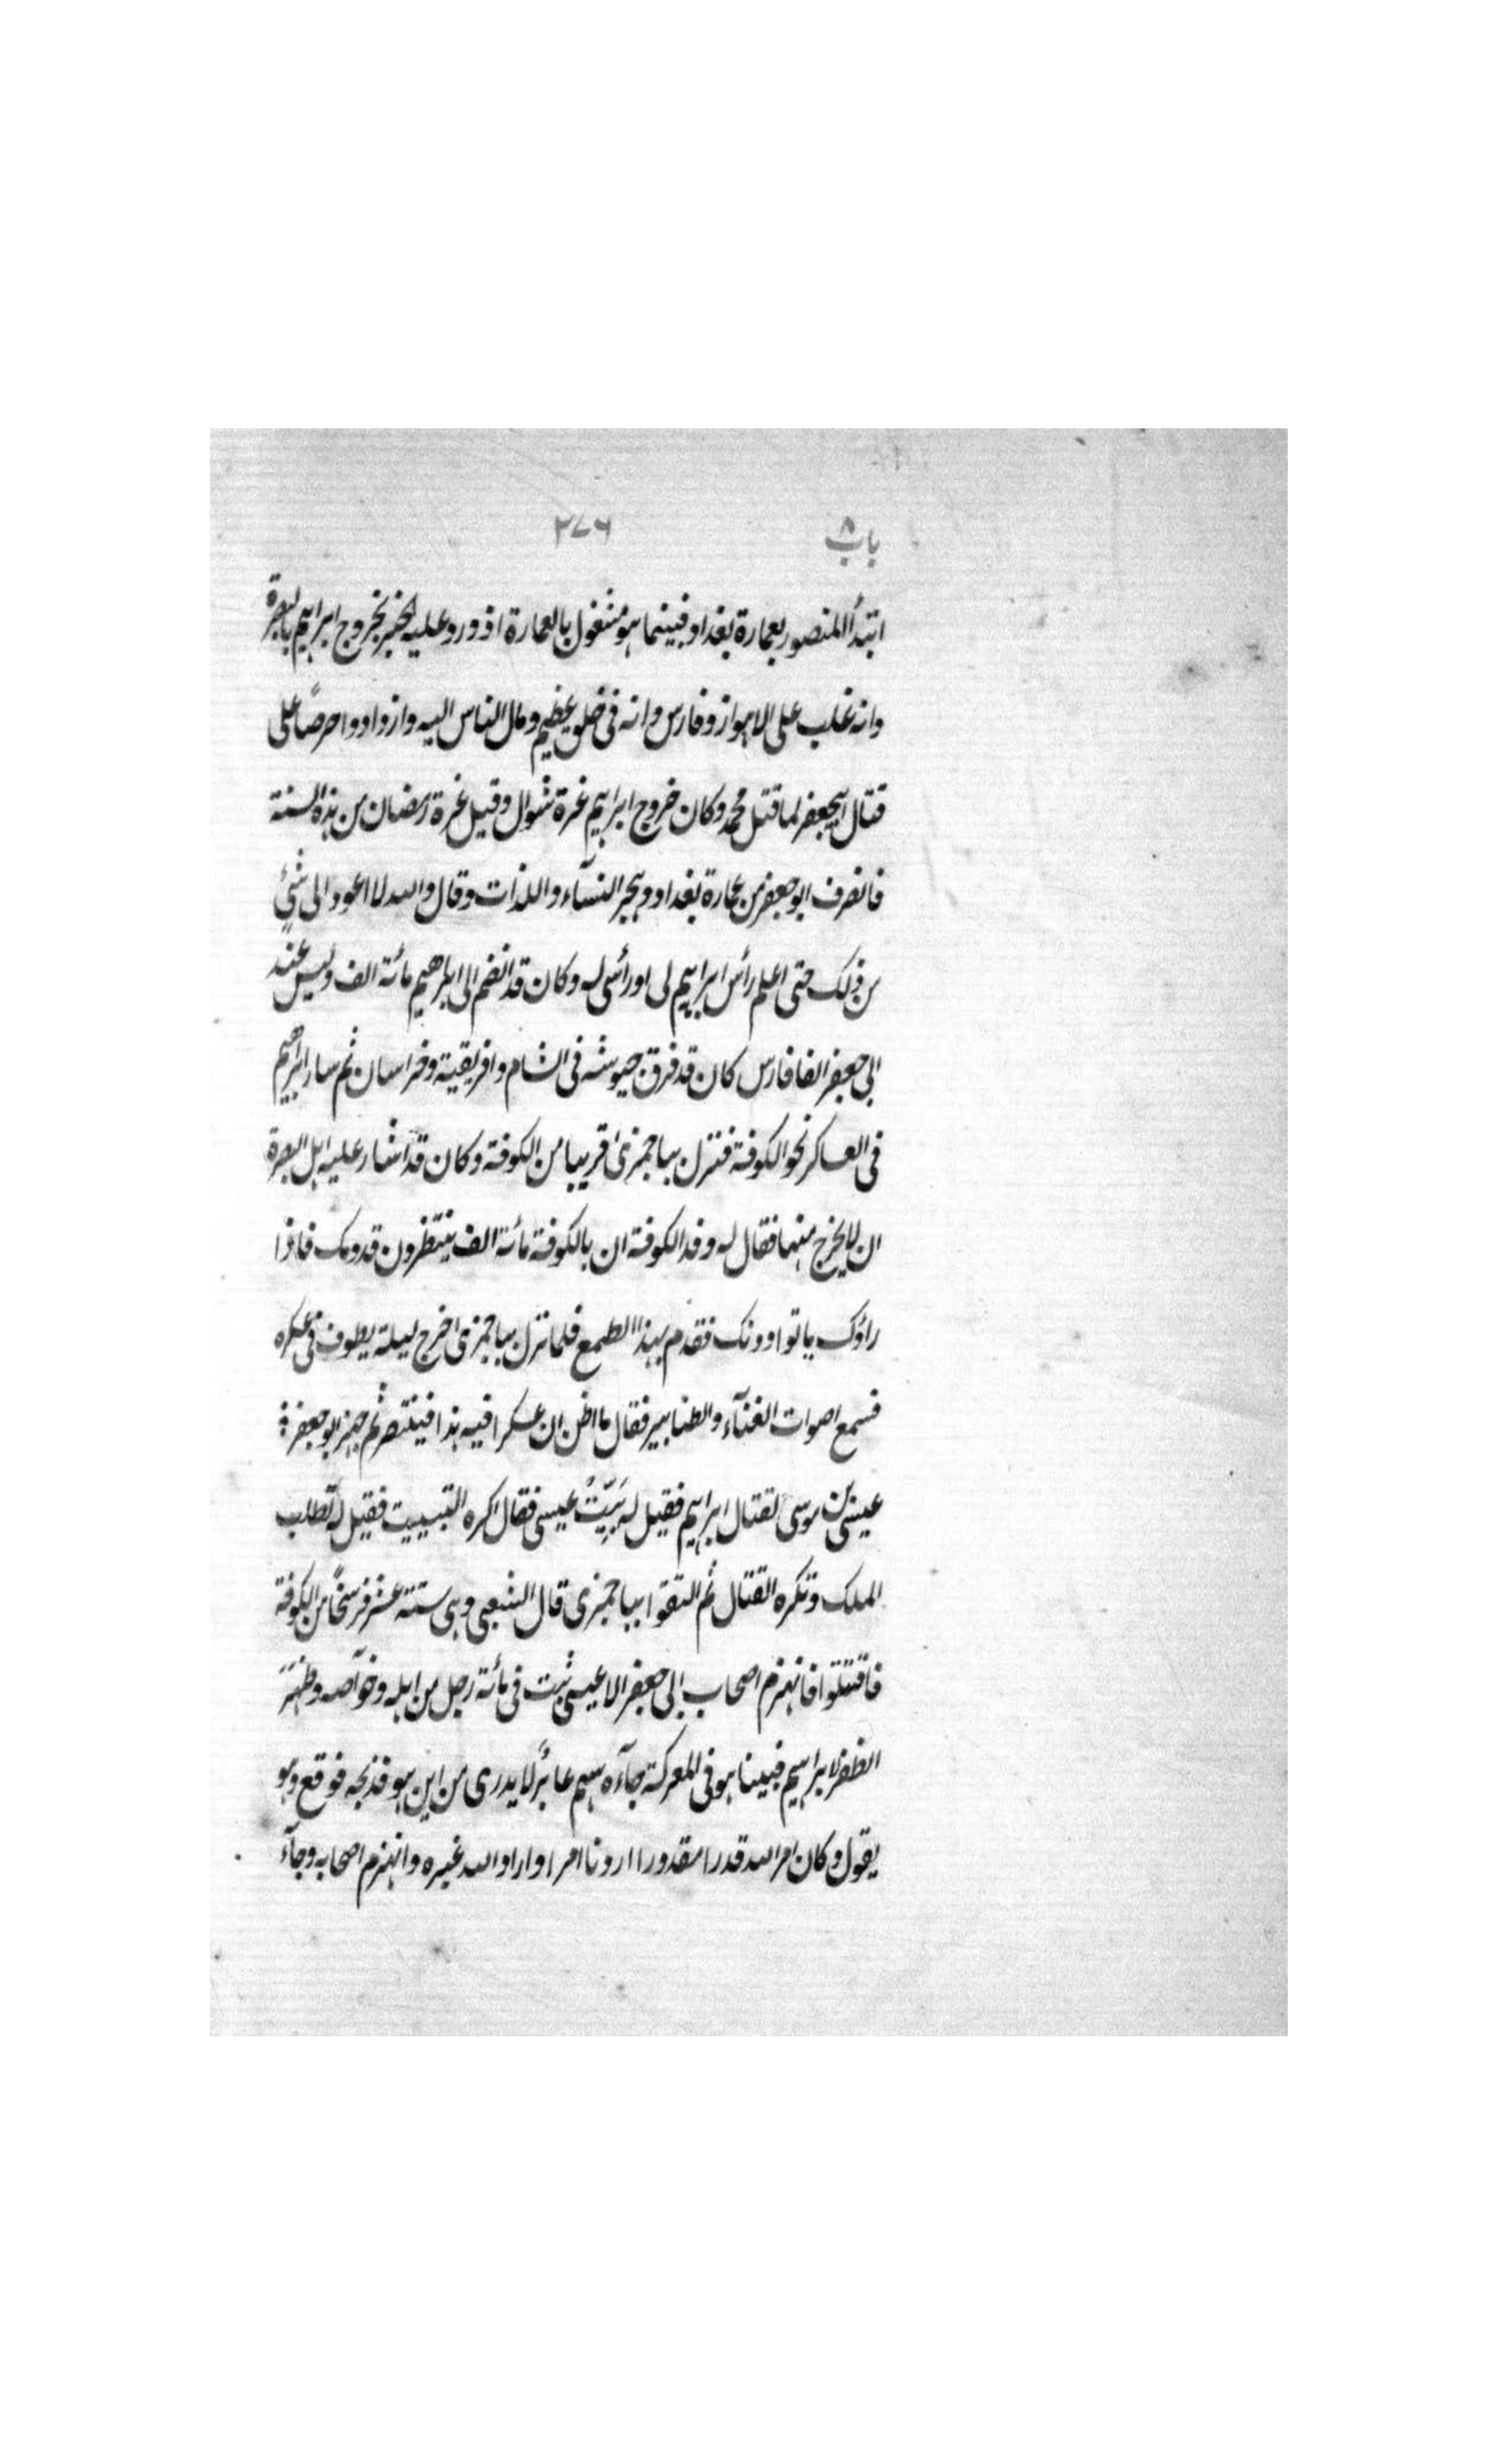 باب ٨ ٢٧٦
ابتدأ المنصور بعمارة بغداد فبينما هو مشغول بالعمارة اذ ورد عليه الخبر بخروج ابراهيم بالبصرة
وانه غلب على الاهواز وفارس وانه فى خلق عظيم ومال الناس اليه وازدادوا حرصاً على
قتال ابيجعفر لما قتل محمد وكان خروج ابراهيم غرة شوال وقيل غرة رمضان من هذه السنة
فانصرف ابو جعفر من عمارة بغداد وهجر النسآء واللذات وقال والله لا اعود الى شئ
من ذلك حتى اعلم رأس ابراهيم لى او رأسى له وكان قد انضم الى ابراهيم مائة الف وليس عند
ابى جعفر الفا فارس كان قد فرق جيوشه فى الشام وافريقية وخراسان ثم سار ابراهيم
فى العساكر نحو الكوفة فنزل بباجمزى قريبا من الكوفة وكان قد اشار عليه اهل البصرة
ان لا يخرج منها فقال له وفد الكوفة ان بالكوفة مائة الف ينتظرون قدومك فاذا
راؤك ماتوا دونك فقدم بهذا الطمع فلما نزل بباجمزى اخرج ليلة يطوف فى عسكره
فسمع اصوات الغنآء والطنابير فقال ما اظن ان عسكرا فيه هذا فينتصر ثم جهز ابو جعفر
عيسى بن موسى لقتال ابراهيم فقيل له بَيِّتْ عيسى فقال اكره التبييت فقيل له تطلب
الملك وتكره القتال ثم التقوا بباجمزى قال الشعبى وهى ستة عشر فرسخاً من الكوفة
فاقتتلوا فانهزم اصحاب ابى جعفر الا عيسى ثبت فى مائة رجل من اهله وخوآصه وظهر
الظفر لابراهيم فبينا هو فى المعركة جآءه سهم عائرٌ لا يدرى من اين هو فذبحه فوقع وهو
يقول وكان امر الله قدرا مقدورا اردنا امرا واراد الله غيره وانهزم اصحابه وجآء